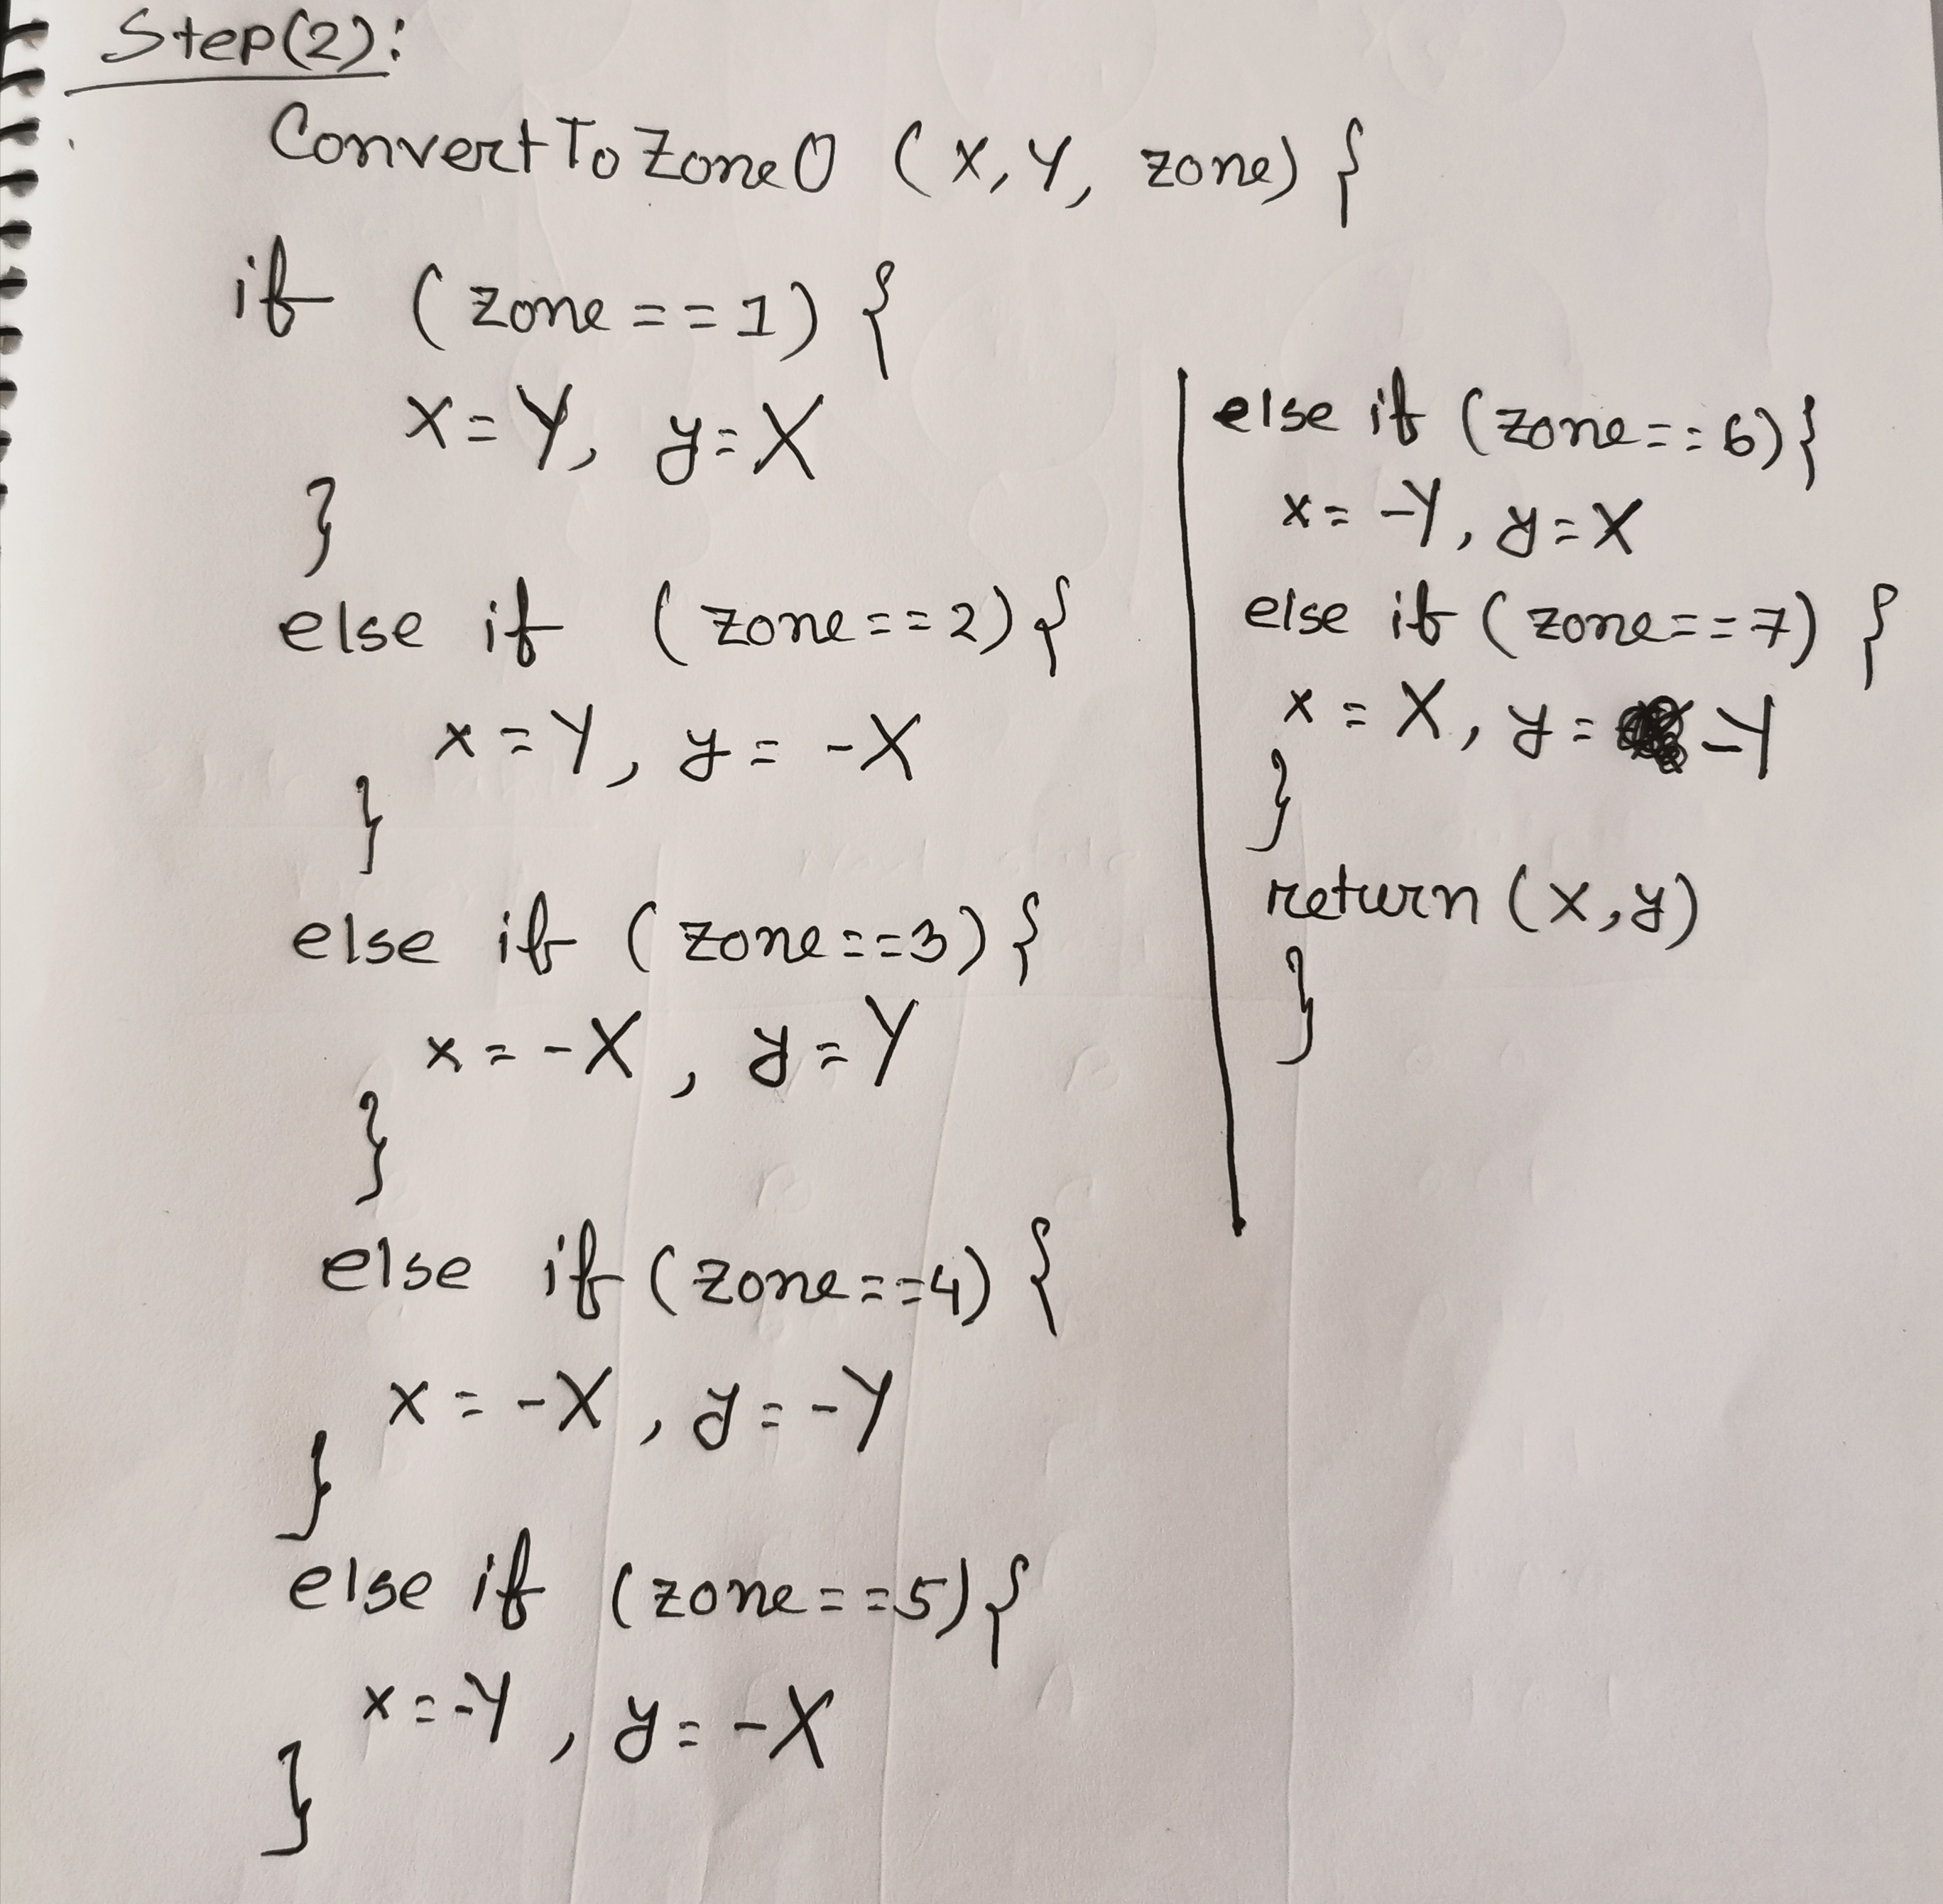 Step(2):
ConvertToZone0 (X,Y, zone) {
if (zone==1) {
X=Y, y=X
}
else if (zone==2){
x=Y, y=-X
}
else if (zone==3){
x=-X, y=Y
}
else if (zone==4) {
x=-X, y=-Y
}
else if (zone==5){
x=-Y, y=-X
}
else if (zone==6){
x=-Y, y=X
else if (zone==7) {
x=X, y=-Y
}
return (x,y)
}